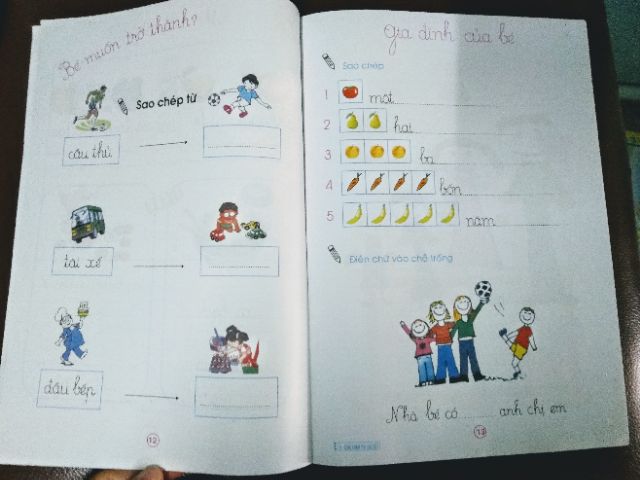 Bé muốn trở thành?
Sao chép từ
cầu thủ
tài xế
đầu bếp
12
Gia đình của bé
Sao chép
1 một
2 hai
3 ba
4 bốn
5 năm
Điền chữ vào chỗ trống
Nhà bé có........ anh chị em
13